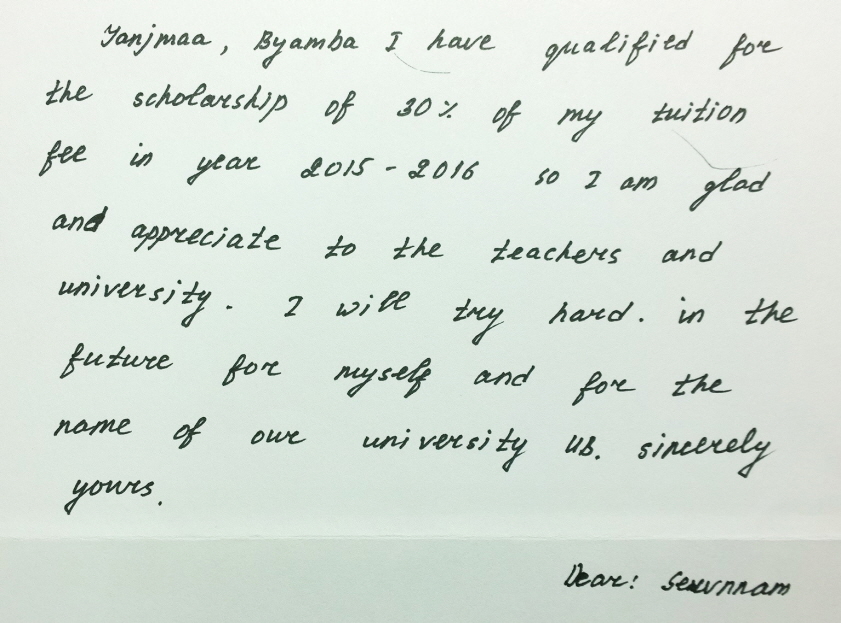 Yanjmaa, Byamba I have qualified for
the scholarship of 30% of my tuition
fee in year 2015-2016 so I am glad
and appreciate to the teachers and
university. I will try hard. in the
future for myself and for the
name of our university UB. sincerely
yours.
Dear: